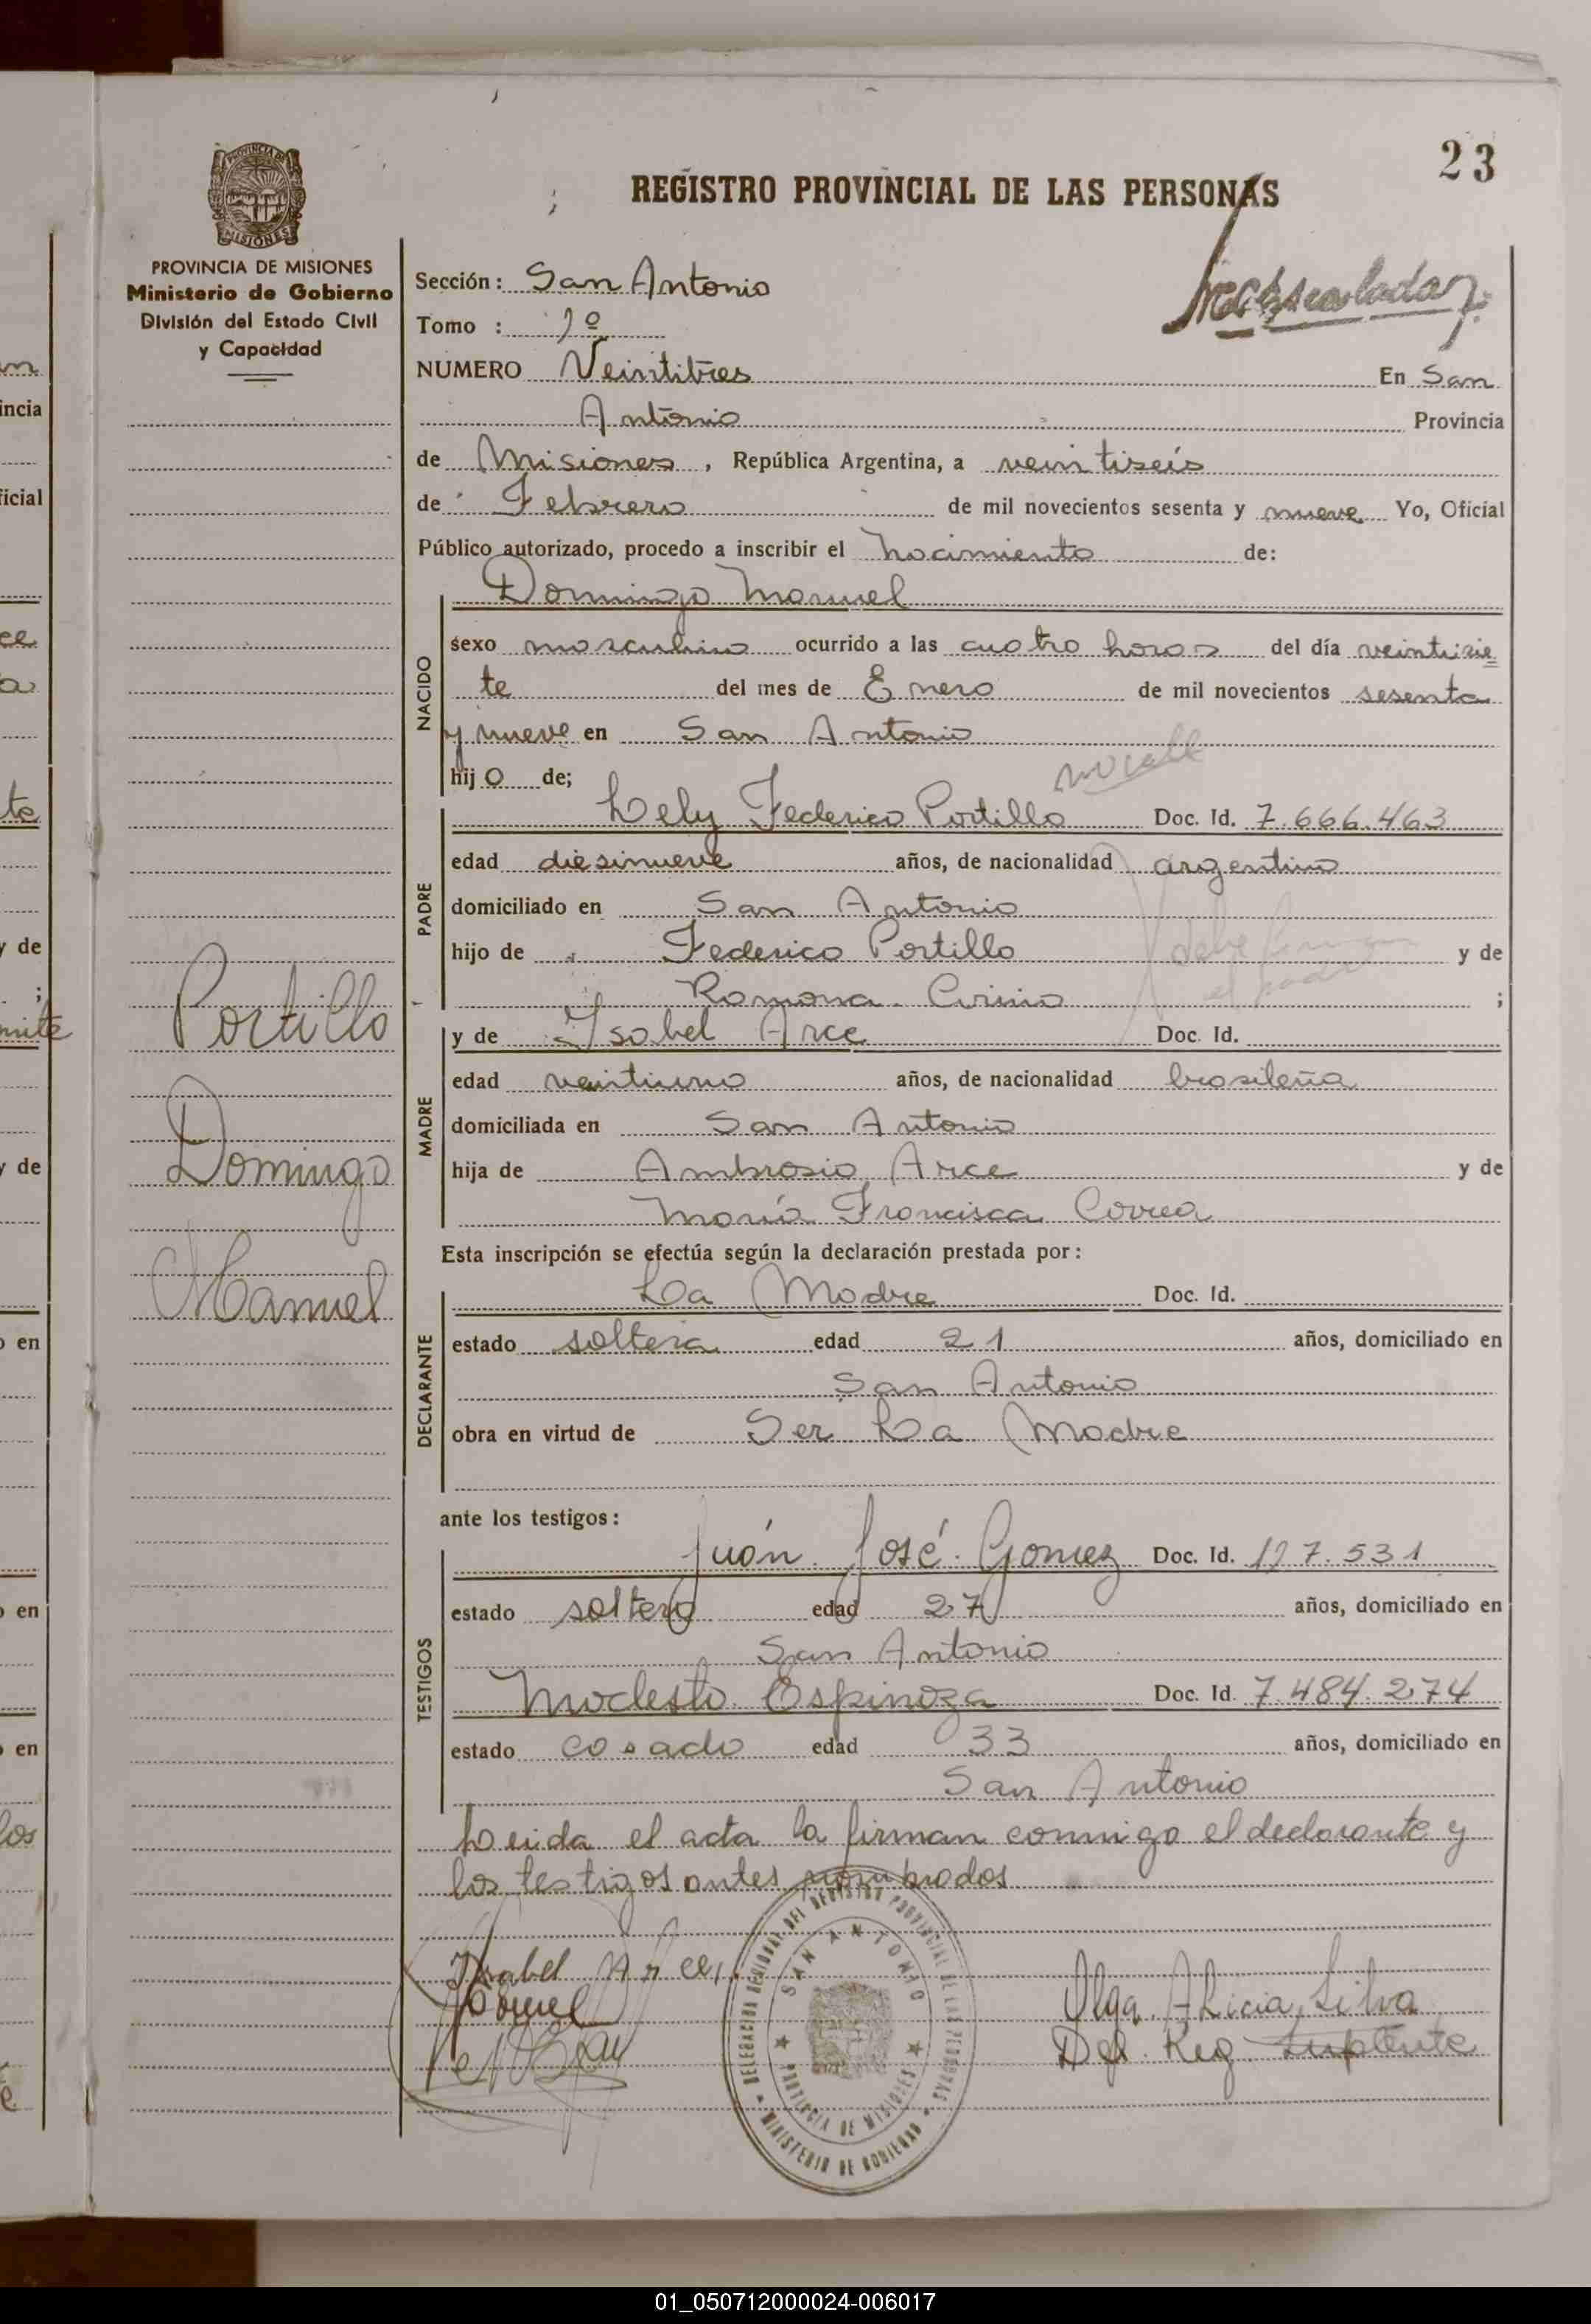 23
REGISTRO PROVINCIAL DE LAS PERSONAS
PROVINCIA DE MISIONES
Ministerio de Gobierno
División del Estado Civil
y Capacidad
Sección: San Antonio
Tomo : 1º
NUMERO Veintitres En San
Antonio Provincia
de Misiones, República Argentina, a veintiseis
de Febrero de mil novecientos sesenta y nueve Yo, Oficial
Público autorizado, procedo a inscribir el nacimiento de:
Domingo Manuel
NACIDO
sexo masculino ocurrido a las cuatro horas del día veintisie=
te del mes de Enero de mil novecientos sesenta
y nueve en San Antonio
hijo de;
Lely Federico Portillo Doc. Id. 7.666.463
PADRE
edad diesinueve años, de nacionalidad argentino
domiciliado en San Antonio
hijo de Federico Portillo y de
Ramona ;
y de Isabel Arce Doc. Id.
MADRE
edad veintiuno años, de nacionalidad brasileña
domiciliada en San Antonio
hija de Ambrosio Arce y de
María Francisca Correa
Portillo
Domingo
Manuel
Esta inscripción se efectúa según la declaración prestada por:
La Madre Doc. Id.
DECLARANTE
estado soltera edad 21 años, domiciliado en
San Antonio
obra en virtud de Ser La Madre
ante los testigos:
Juán José Gomez Doc. Id. 197.531
TESTIGOS
estado soltero edad 27 años, domiciliado en
San Antonio
Modesto Espinoza Doc. Id. 7.484.274
estado casado edad 33 años, domiciliado en
San Antonio
Leida el acta la firman conmigo el declarante y
los testigos antes nombrados
Isabel Arce
Olga Alicia Silva
Del. Reg. Suplente
DELEGACION REGIONAL DEL REGISTRO PROVINCIAL DE LAS PERSONAS
SAN ANTONIO
PROVINCIA DE MISIONES
MINISTERIO DE GOBIERNO
01_050712000024-006017